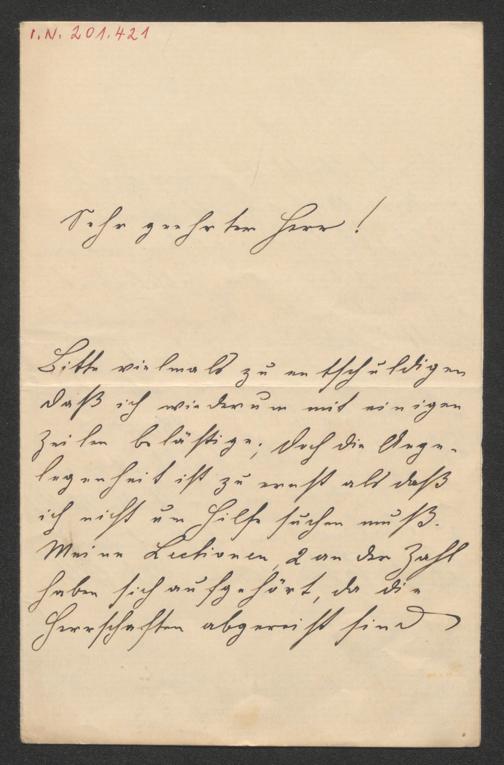 I.N. 201.421
Sehr geehrter Herr!
Bitte vielmals zu entschuldigen
daß ich wiederum mit einigen
Zeilen belästige; doch die Ange-
legenheit ist zu ernst als daß
ich nicht um Hilfe suchen muß.
Meine Lectionen, 2 an der Zahl
haben sich aufgehört, da die
Herrschaften abgereist sind